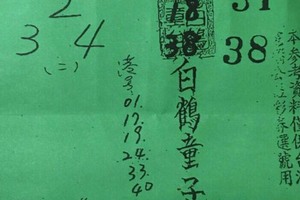 2
3 4
(二)
01.
17.
19.
24.
33.
40
18
38
白鶴童子
31
38
本參考資料僅供台
彩券選號用